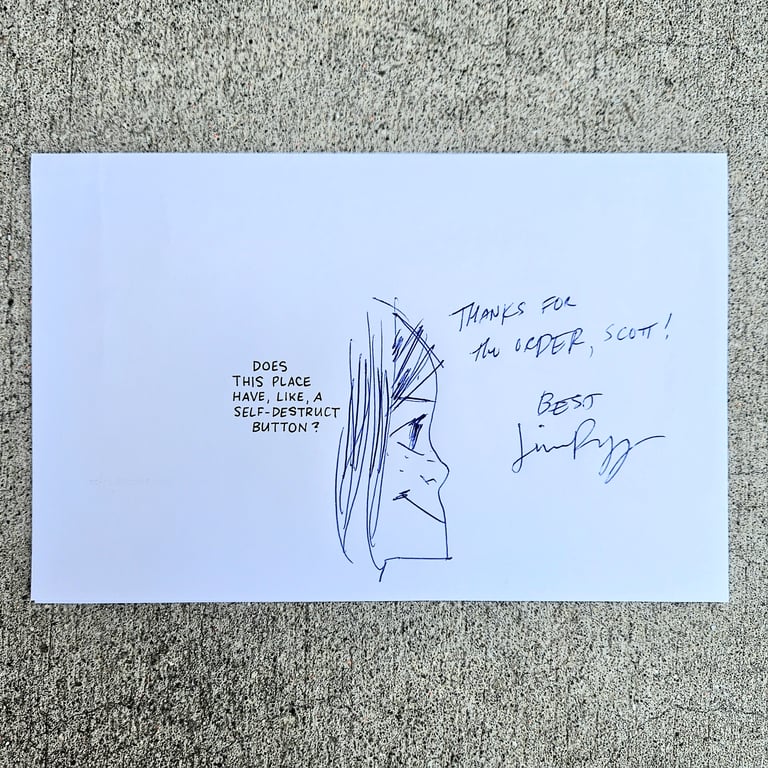 DOES
THIS PLACE
HAVE, LIKE, A
SELF-DESTRUCT
BUTTON?
THANKS FOR
the ORDER, SCOTT!
BEST
Jim Rugg